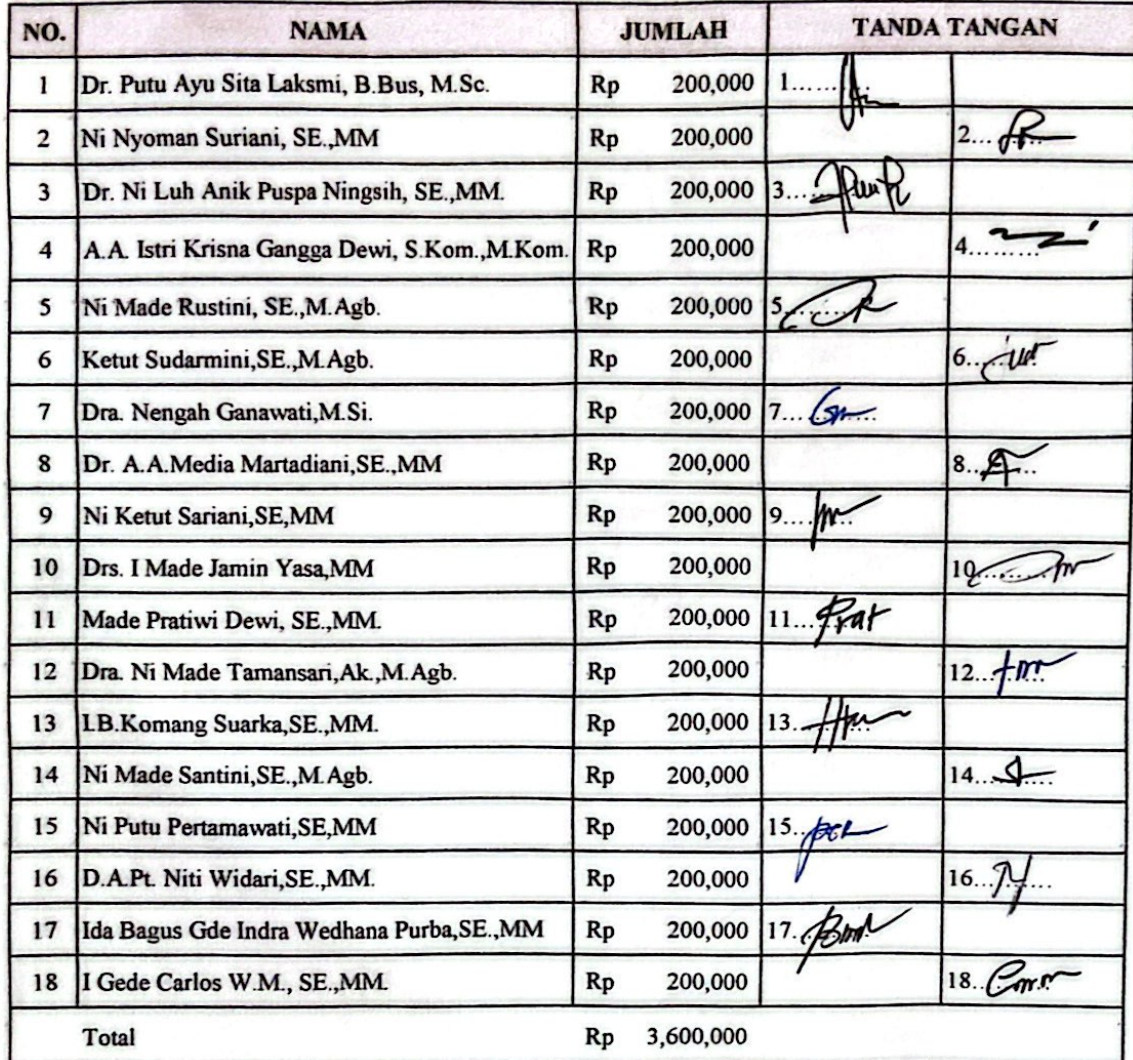 NO. NAMA JUMLAH TANDA TANGAN
1 Dr. Putu Ayu Sita Laksmi, B.Bus, M.Sc. Rp 200,000 1......
2 Ni Nyoman Suriani, SE.,MM Rp 200,000 2...
3 Dr. Ni Luh Anik Puspa Ningsih, SE.,MM. Rp 200,000 3....
4 A.A. Istri Krisna Gangga Dewi, S.Kom.,M.Kom. Rp 200,000 4.........
5 Ni Made Rustini, SE.,M.Agb. Rp 200,000 5.
6 Ketut Sudarmini,SE.,M.Agb. Rp 200,000 6.
7 Dra. Nengah Ganawati,M.Si. Rp 200,000 7...
8 Dr. A.A.Media Martadiani,SE.,MM Rp 200,000 8..
9 Ni Ketut Sariani,SE,MM Rp 200,000 9....
10 Drs. I Made Jamin Yasa,MM Rp 200,000 10
11 Made Pratiwi Dewi, SE.,MM. Rp 200,000 11... Prat
12 Dra. Ni Made Tamansari,Ak.,M.Agb. Rp 200,000 12...
13 I.B.Komang Suarka,SE.,MM. Rp 200,000 13.
14 Ni Made Santini,SE.,M.Agb. Rp 200,000 14...
15 Ni Putu Pertamawati,SE,MM Rp 200,000 15.
16 D.A.Pt. Niti Widari,SE.,MM. Rp 200,000 16...
17 Ida Bagus Gde Indra Wedhana Purba,SE.,MM Rp 200,000 17.
18 I Gede Carlos W.M., SE.,MM. Rp 200,000 18..
Total Rp 3,600,000